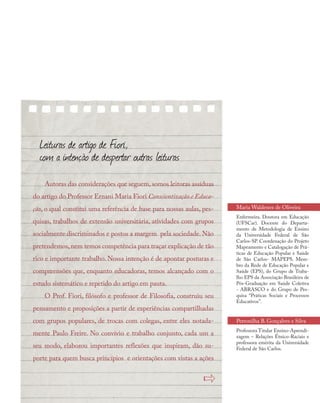 Leituras de artigo de Fiori,
com a intenção de despertar outras leituras
Autoras das considerações que seguem, somos leitoras assíduas
do artigo do Professor Ernani Maria Fiori Conscientização e Educa-
ção, o qual constitui uma referência de base para nossas aulas, pes-
quisas, trabalhos de extensão universitária, atividades com grupos
socialmente discriminados e postos a margem pela sociedade. Não
pretendemos, nem temos competência para traçar explicação de tão
rico e importante trabalho. Nossa intenção é de apontar posturas e
compreensões que, enquanto educadoras, temos alcançado com o
estudo sistemático e repetido do artigo em pauta.
O Prof. Fiori, filósofo e professor de Filosofia, construiu seu
pensamento e proposições a partir de experiências compartilhadas
com grupos populares, de trocas com colegas, entre eles notada-
mente Paulo Freire. No convívio e trabalho conjunto, cada um a
seu modo, elaborou importantes reflexões que inspiram, dão su-
porte para quem busca princípios e orientações com vistas a ações
Maria Waldenez de Oliveira
Enfermeira, Doutora em Educação
(UFSCar). Docente do Departa-
mento de Metodologia de Ensino
da Universidade Federal de São
Carlos-SP. Coordenação do Projeto
Mapeamento e Catalogação de Prá-
ticas de Educação Popular e Saúde
de São Carlos- MAPEPS. Mem-
bro da Rede de Educação Popular e
Saúde (EPS), do Grupo de Traba-
lho EPS da Associação Brasileira de
Pós-Graduação em Saúde Coletiva
- ABRASCO e do Grupo de Pes-
quisa "Práticas Sociais e Processos
Educativos".
Petronilha B. Gonçalves e Silva
Professora Titular Ensino-Aprendi-
zagem – Relações Étnico-Raciais e
professora emérita da Universidade
Federal de São Carlos.